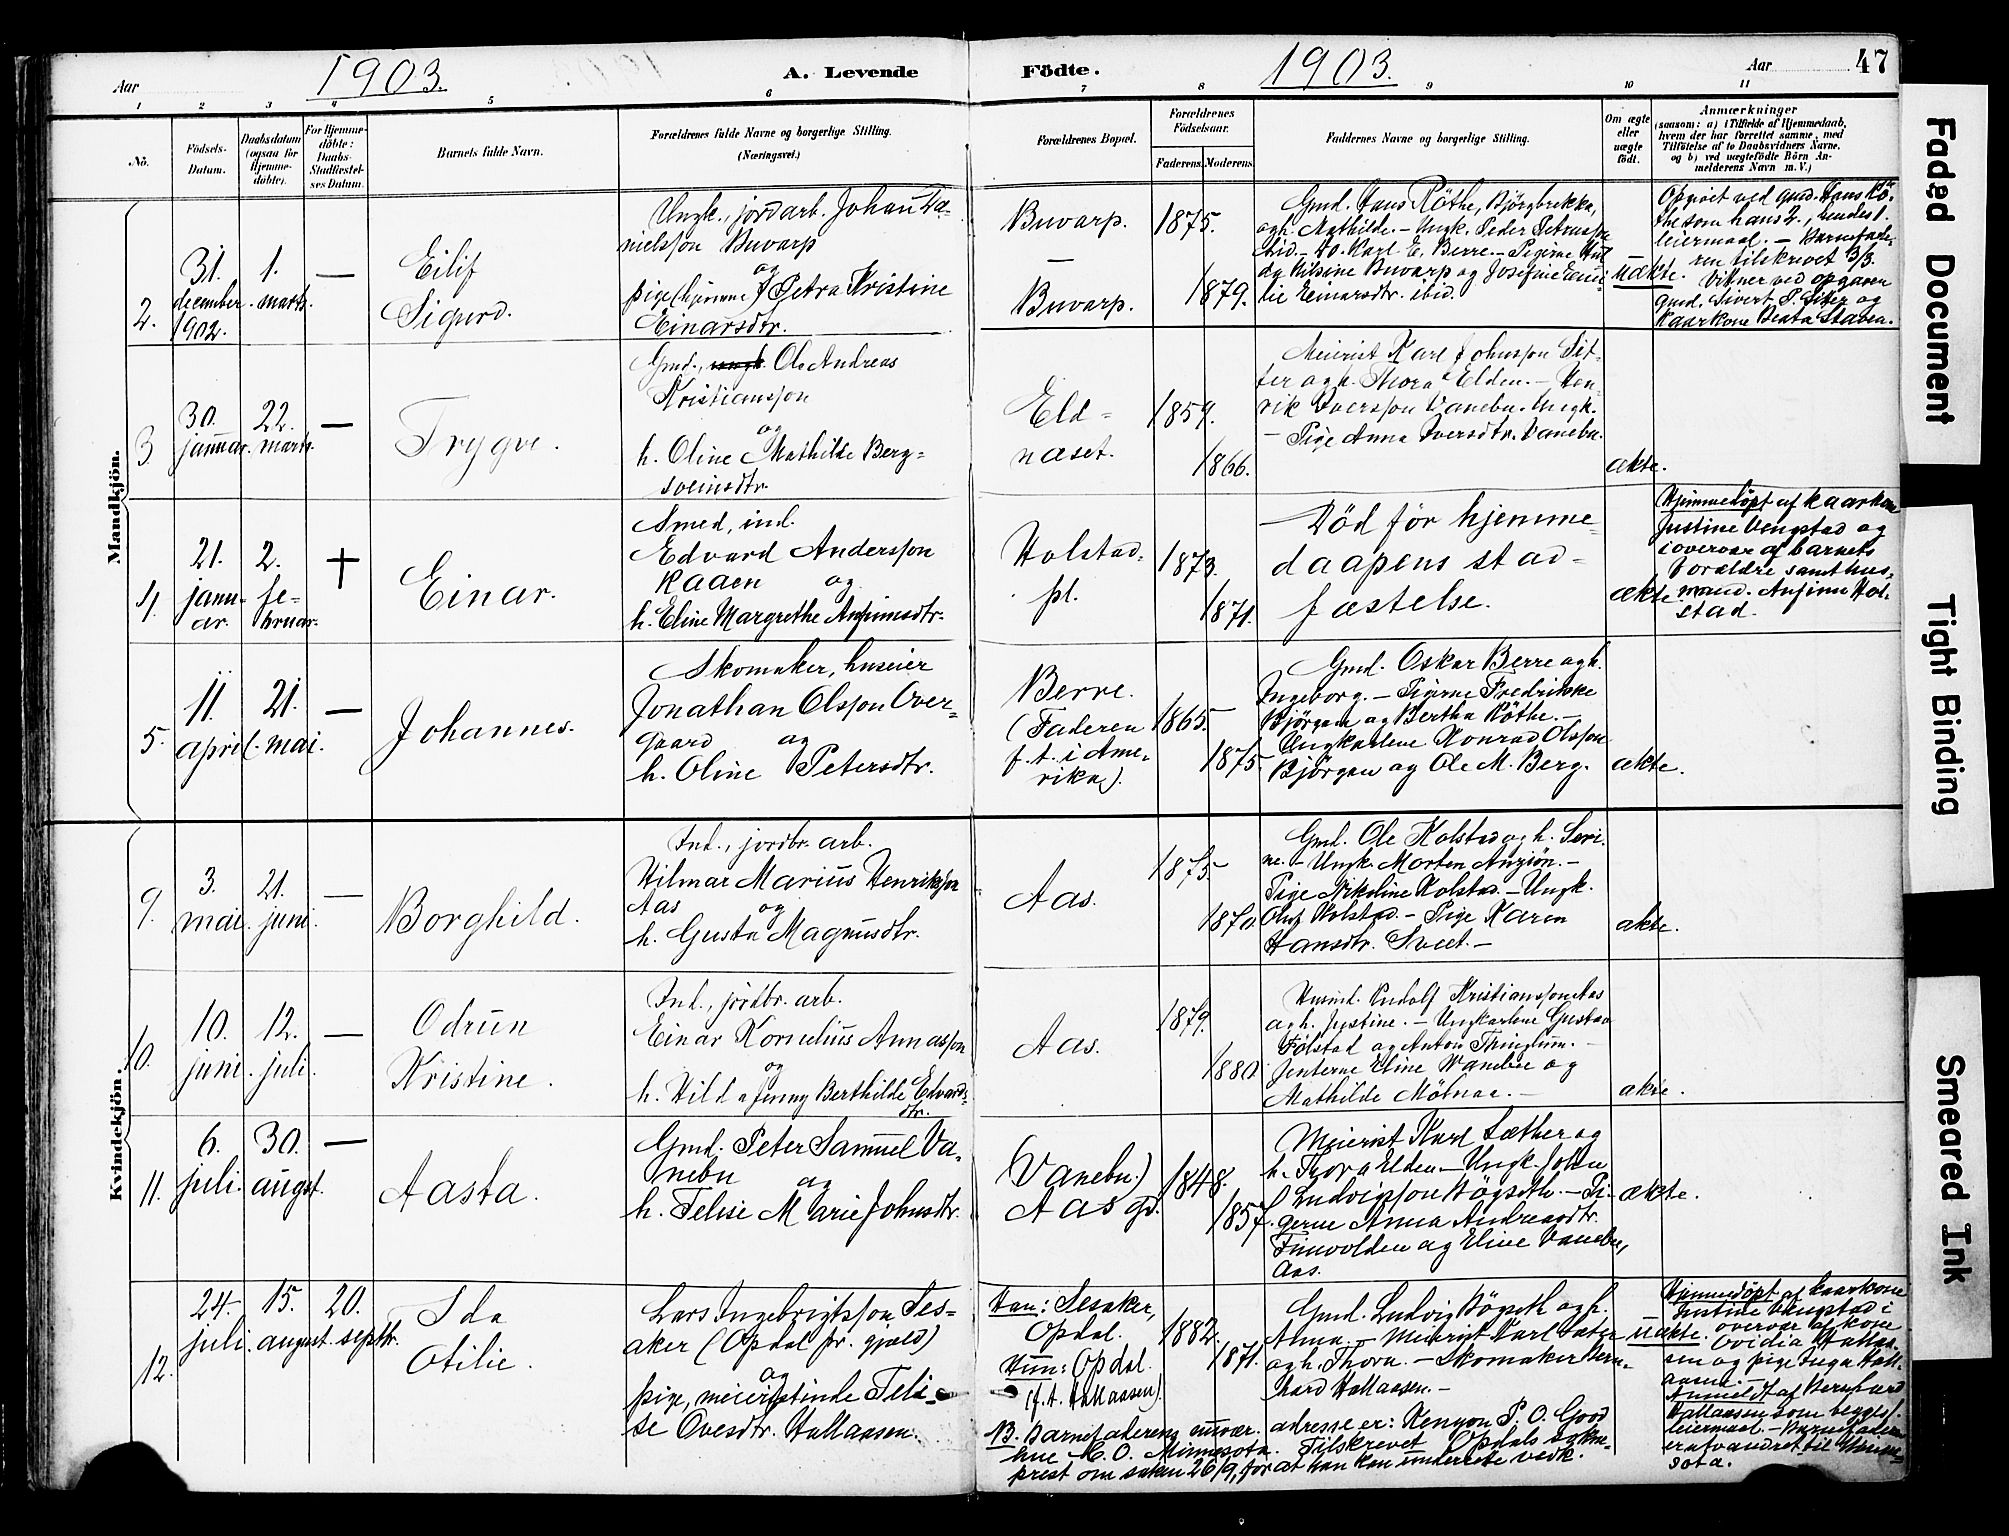 Aar 1903. A. Levende Födte. 1903. Aar 47
1 2 3 4 5 6 7 8 9 10 11
No.
Födsels-
Datum.
Daabsdatum
(ogsaa for
Hjemme-
döbte).
For Hjemme-
döbte:
Daabs-
Stadfæstel-
ses Datum.
Barnets fulde Navn.
Forældrenes fulde Navne og borgerlige Stilling.
(Næringsvei.)
Forældrenes Bopæl.
Forældrenes
Födselsaar.
Faderens. Moderens.
Faddernes Navne og borgerlige Stilling.
Om ægte
eller
uægte
födt.
Anmærkninger
(saasom: a) i Tilfælde af Hjemmedaab,
hvem der har forrettet samme, med
Tilföielse af to Daabsvidners Navne,
og b) ved uægtefödte Börn An-
melderens Navn m. V.)
Mandkjön.
2.
31.
december
1902.
1.
marts.
—
Eilif
Sigurd.
Ungk., jordarb. Johan Da-
nielsson Buvarp
og
pige (hjemme) Petra Kristine
Einarsdtr.
Buvarp.
—
Buvarp.
1875.
1879.
Gmd. Hans Röthe, Björgbrekka,
og h. Mathilde. — Ungk. Peder Petersson
ibid. — Karl E. Berre. — Pigerne Hul-
da Nilsine Buvarp og Josefine Emi-
lie Einarsdtr. ibid.
uækte.
Opgivet ved gmd. Hans Rö-
the som hans 2., hendes 1.
leiermaal. — Barnefade-
ren tilskrevet 3/3.
Vitner ved opgaven
gmd. Sivert P. Sæter og
kaarkone Beata Staven.
3.
30.
januar.
22.
marts.
—
Trygve.
Gmd., ungk. Ole Andreas
Kristiansson
og
h. Oline Mathilde Berg-
sveinsdtr.
Eld-
næset.
1859.
1866.
Meierist Karl Johnsson Sæ-
ter og h. Thora Elden. — Hen-
rik Iversson Vanebu. Ungk.
— Pige Anna Iversdtr. Vanebu.
ækte.
4.
21.
janu-
ar.
2.
fe-
bruar.
†
Einar.
Smed, ind.
Edvard Andersson
Kaaen og
h. Eline Margrethe Anfinnsdtr.
Holstad-
pl.
1873.
1871.
— Död för hjemme-
daapens stad-
fæstelse.
ækte
Hjemmedöpt af kaarkone
Justine Vengstad og
i overvær af barnets
forældre samt hus-
mand. Anfinn Hol-
stad.
5.
11.
april.
21.
mai.
—
Johannes.
Skomaker, huseier
Jonathan Olsson Over-
gaard og
h. Oline Petersdtr.
Berre.
(Faderen
f. t. i Ame-
rika).
1865.
1875.
Gmd. Oskar Berre og h.
Ingeborg. — Pigerne Fredrikke
Björgan og Bertha Röthe. —
Ungkarlene Konrad Olsson
Björgan og Ole M. Berg.
ækte.
Kvindekjön.
9.
3.
mai.
21.
juni.
—
Borghild.
Ind., jordbr. arb.
Hilmar Marius Henriksson
Aas og
h. Gusta Magnusdtr.
Aas.
1875.
1870.
Gmd. Ole Holstad og h. Seri-
ne. — Ungk. Morten Anzjön. —
Pige Nikoline Holstad. — Ungk.
Oluf Holstad. — Pige Karen
Hansdtr. Sveet. —
ækte.
10.
10.
juni.
12.
juli.
—
Odrun
Kristine.
Ind., jordbr. arb.
Einar Kornelius Annasson
og
h. Hilda Jenny Berthilde Edvards-
dtr.
Aas.
1879.
1880.
Husmd. Rudolf Kristiansson Aas
og h. Justine. — Ungkarlene Gustav
Fölstad og Anton Thinglum. —
Jenterne Eline Vanebu og
Mathilde Mölnaa. —
ækte.
11.
6.
juli.
30.
august.
—
Aasta.
Gmd. Peter Samuel Va-
nebu og
h. Felise Marie Johnsdtr.
(Vanebu.)
Aas gd.
1848.
1857.
Meierist Karl Sæther og
h. Thora Elden. — Ungk. John
Ludvigsson Bögseth. — Pi-
gerne Anna Andreasdtr.
Finnvolden og Eline Vanebu,
Aas.
ækte.
12.
24.
juli.
15.
august.
20.
septbr.
Ida
Otilie.
Lars Ingebrigtsson Ses-
aker (Opdal pr. gjæld)
og
pige, meieristinde Feli-
se Ovesdtr. Hallaasen.
Han: Sesaker,
Opdal.
Hun: Opdal.
(f. t. Hallaasen).
1882.
1871.
Gmd. Ludvig Bögseth og h.
Anna. — Meierist Karl Sæter
og h. Thora. — Skomaker Bern-
hard Hallaasen. —
uækte.
Hjemmedöpt af kaarkone
Justine Vengstad i
overvær af kone
Ovidia Hallaa-
sen og pige Inga Hall-
aasen. —
Anmeldt af Bernhard
Hallaasen som begges 1.
leiermaal. — Barnefaderen
er utvandret til Minne-
sota.
NB. Barnefaderens nuvær. adresse er: Kenyon P. O. Good
hue C. O. Minnesota. Tilskrevet Opdals sokne-
prest om saken 26/9, for at han kan underrete vedk.
Faded Document
Tight Binding
Smeared Ink